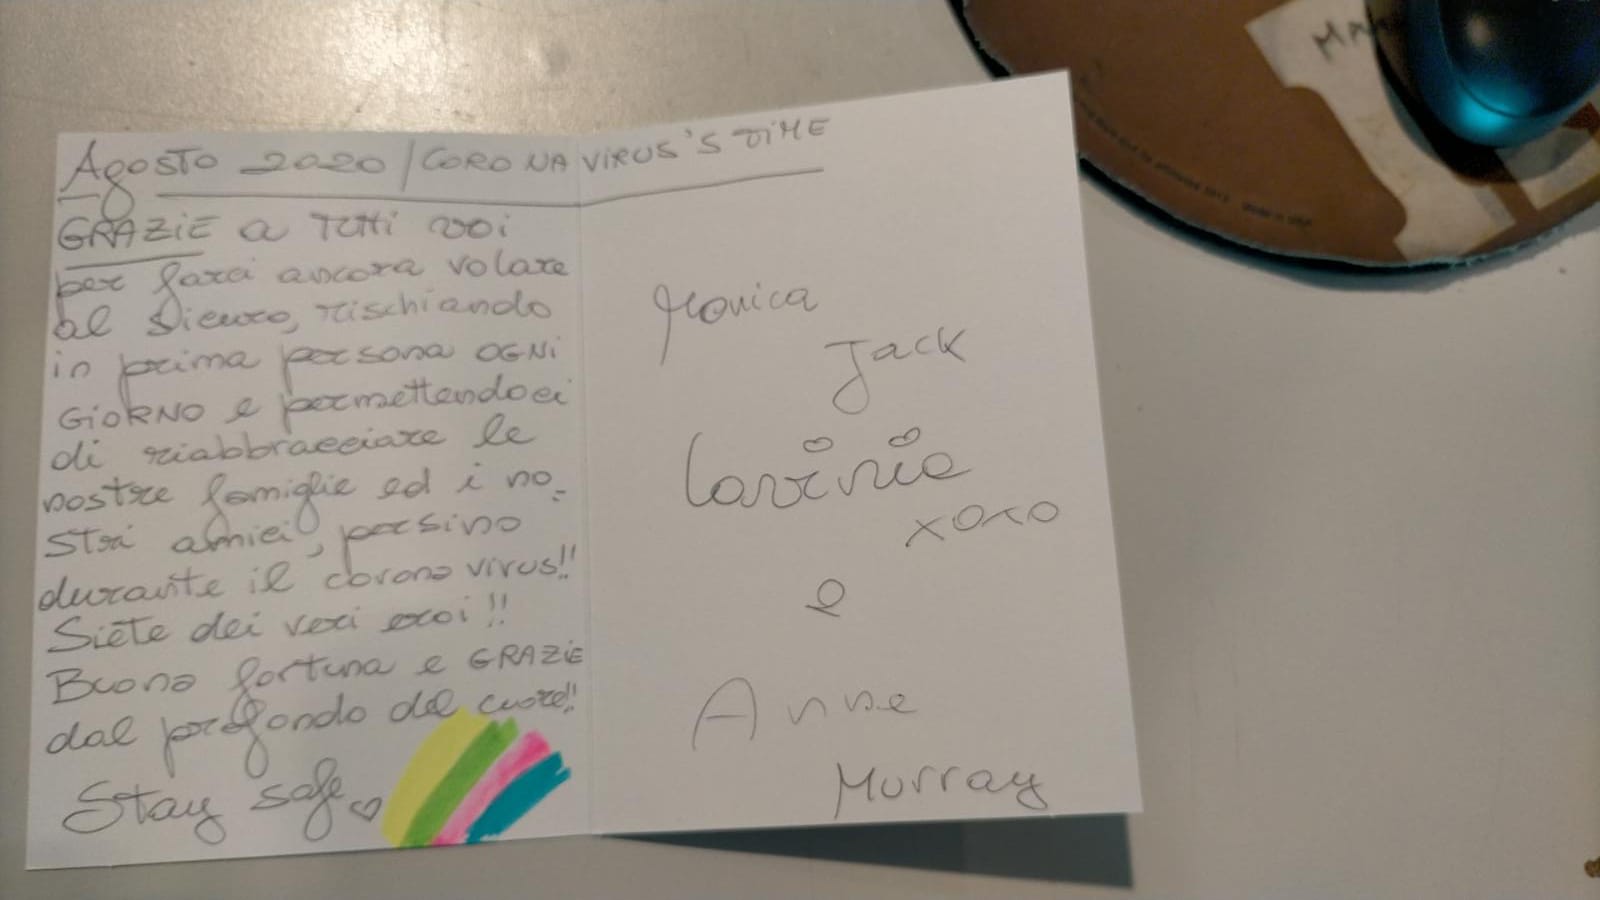 Agosto 2020 / CORONAVIRUS'S TIME
GRAZIE a TUTTI voi
per farci ancora volare
al sicuro, rischiando
in prima persona OGNI
GIORNO e permettendoci
di riabbracciare le
nostre famiglie ed i no-
stri amici, persino
durante il coronavirus!!
Siete dei veri eroi!!
Buona fortuna e GRAZIE
dal profondo del cuore!!
Stay safe
Monica
Jack
Lavinia
xoxo
e
Anne
Murray